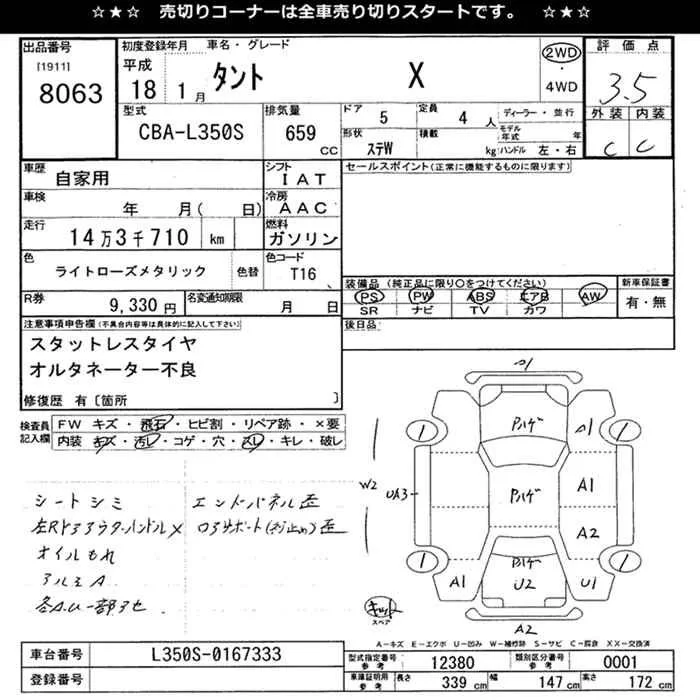 ☆★☆ 売切りコーナーは全車売り切りスタートです。 ☆★☆
出品番号 初度登録年月 車名・グレード 2WD 評価点
[1911] 平成 ・
8063 18 1月 タント X 4WD 3.5
型式 排気量 ドア 5 定員 4人 ディーラー・並行 外装 内装
CBA-L350S 659 CC 形状 ステW 積載 kg モデル年式 年 ハンドル 左・右 C C
車歴 自家用 シフト IAT セールスポイント(正常に機能するものに限ります)
車検 年 月( 日) 冷房 AAC
走行 14万3千710 km 燃料 ガソリン
色 ライトローズメタリック 色替 色コード T16
装備品(純正品に限り○をつけてください) 新車保証書
PS PW ABS エアB AW 有・無
SR ナビ TV カワ
R券 9,330円 名変通知期限 月 日
後日品
注意事項申告欄(不具合内容等は具体的に記入して下さい)
スタットレスタイヤ
オルタネーター不良
修復歴 有〔箇所 〕
検査員記入欄 FW キズ・飛石・ヒビ割・リペア跡・×要
内装 キズ・汚レ・コゲ・穴・スレ・キレ・破レ
シートシミ エンドパネル歪
オイルもれ
アルミA
A1
Pハゲ A1
W2 UA3 Pハゲ A1
A2
Pハゲ
A1 U2 U1
スペア
A2
A-キズ E-エクボ U-凹み W-補修跡 S-サビ C-腐食 XX-交換済
車台番号 L350S-0167333 型式指定番号 参考 12380 類別区分番号 参考 0001
登録番号 車庫証明用 参考 長さ 339 cm 幅 147 cm 高さ 172 cm